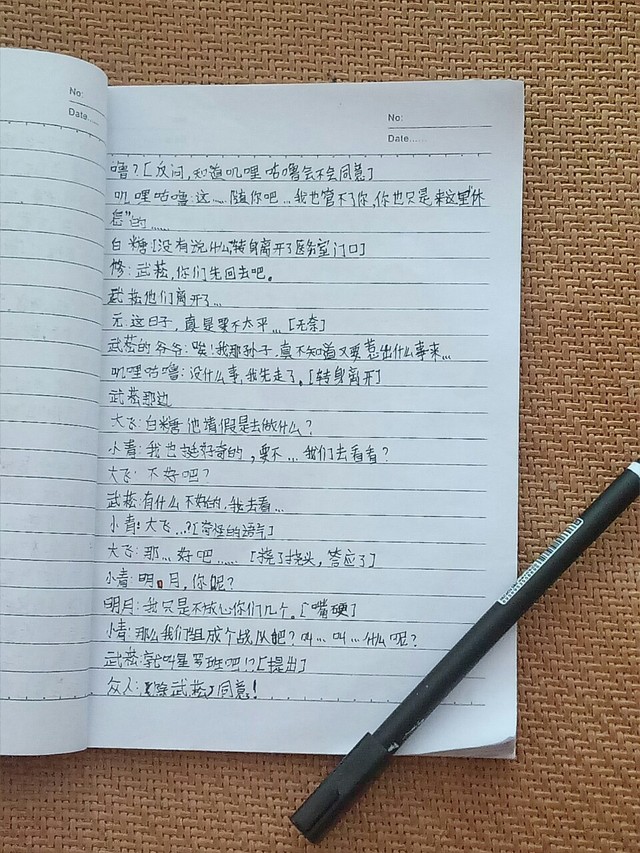 No:
Date......
No:
Date......
噜?[反问,知道叽哩咕噜会不会同意]
叽哩咕噜:这......随你吧...我也管不了你,你也只是来这里"休
息"的......
白糖[没有说什么"转身离开了医务室门口]
修:武菘,你们先回去吧。
武菘他们离开了...
元:这日子,真是要不太平...[无奈]
武菘的爷爷:唉!我那孙子,真不知道又要惹出什么事来...
叽哩咕噜:没什么事,我先走了。[转身离开]
武菘那边
大飞:白糖他请假是去做什么?
小青:我也挺好奇的,要不...我们去看看?
大飞:不好吧?
武菘:有什么不好的,我去看...
小青:大飞...?[奇怪的语气]
大飞:那...好吧...... [挠了挠头,答应了]
小青:明月,你呢?
明月:我只是不放心你们几个。[嘴硬]
小青:那么我们组成个战队吧?叫...叫...什么呢?
武菘:就叫星罗班吧!?[提出]
众人:[除武菘]同意!